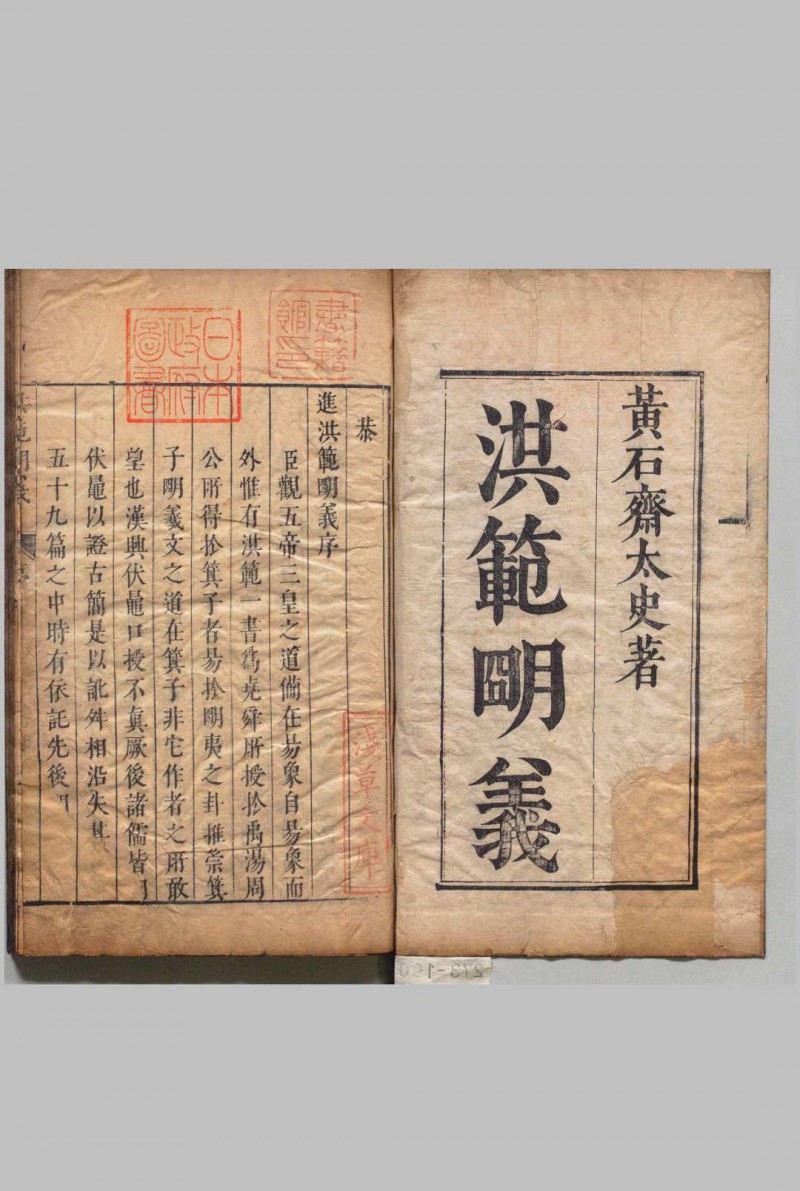 黃石齋太史著
洪範朙義
恭
進洪範朙義序
臣觀五帝三皇之道備在易象自易象而
外惟有洪範一書爲堯舜所授於禹湯周
公所得於箕子者易於朙夷之卦推崇箕
子朙羲文之道在箕子非它作者之所敢
望也漢興伏鼂口授不眞厥後諸儒皆
伏鼂以證古簡是以訛舛相沿失其
五十九篇之中時有依託先後
書籍館印
日本政府圖書
淺草文庫